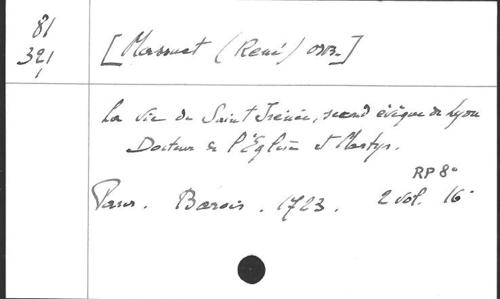 81
321
1
[Massuet (René) OSB.]
La vie de Saint Irénée, second évêque de Lyon
Docteur de l'Eglise et Martyr.
RP 8°
Paris. Barois. 1723. 2 vol. 16°